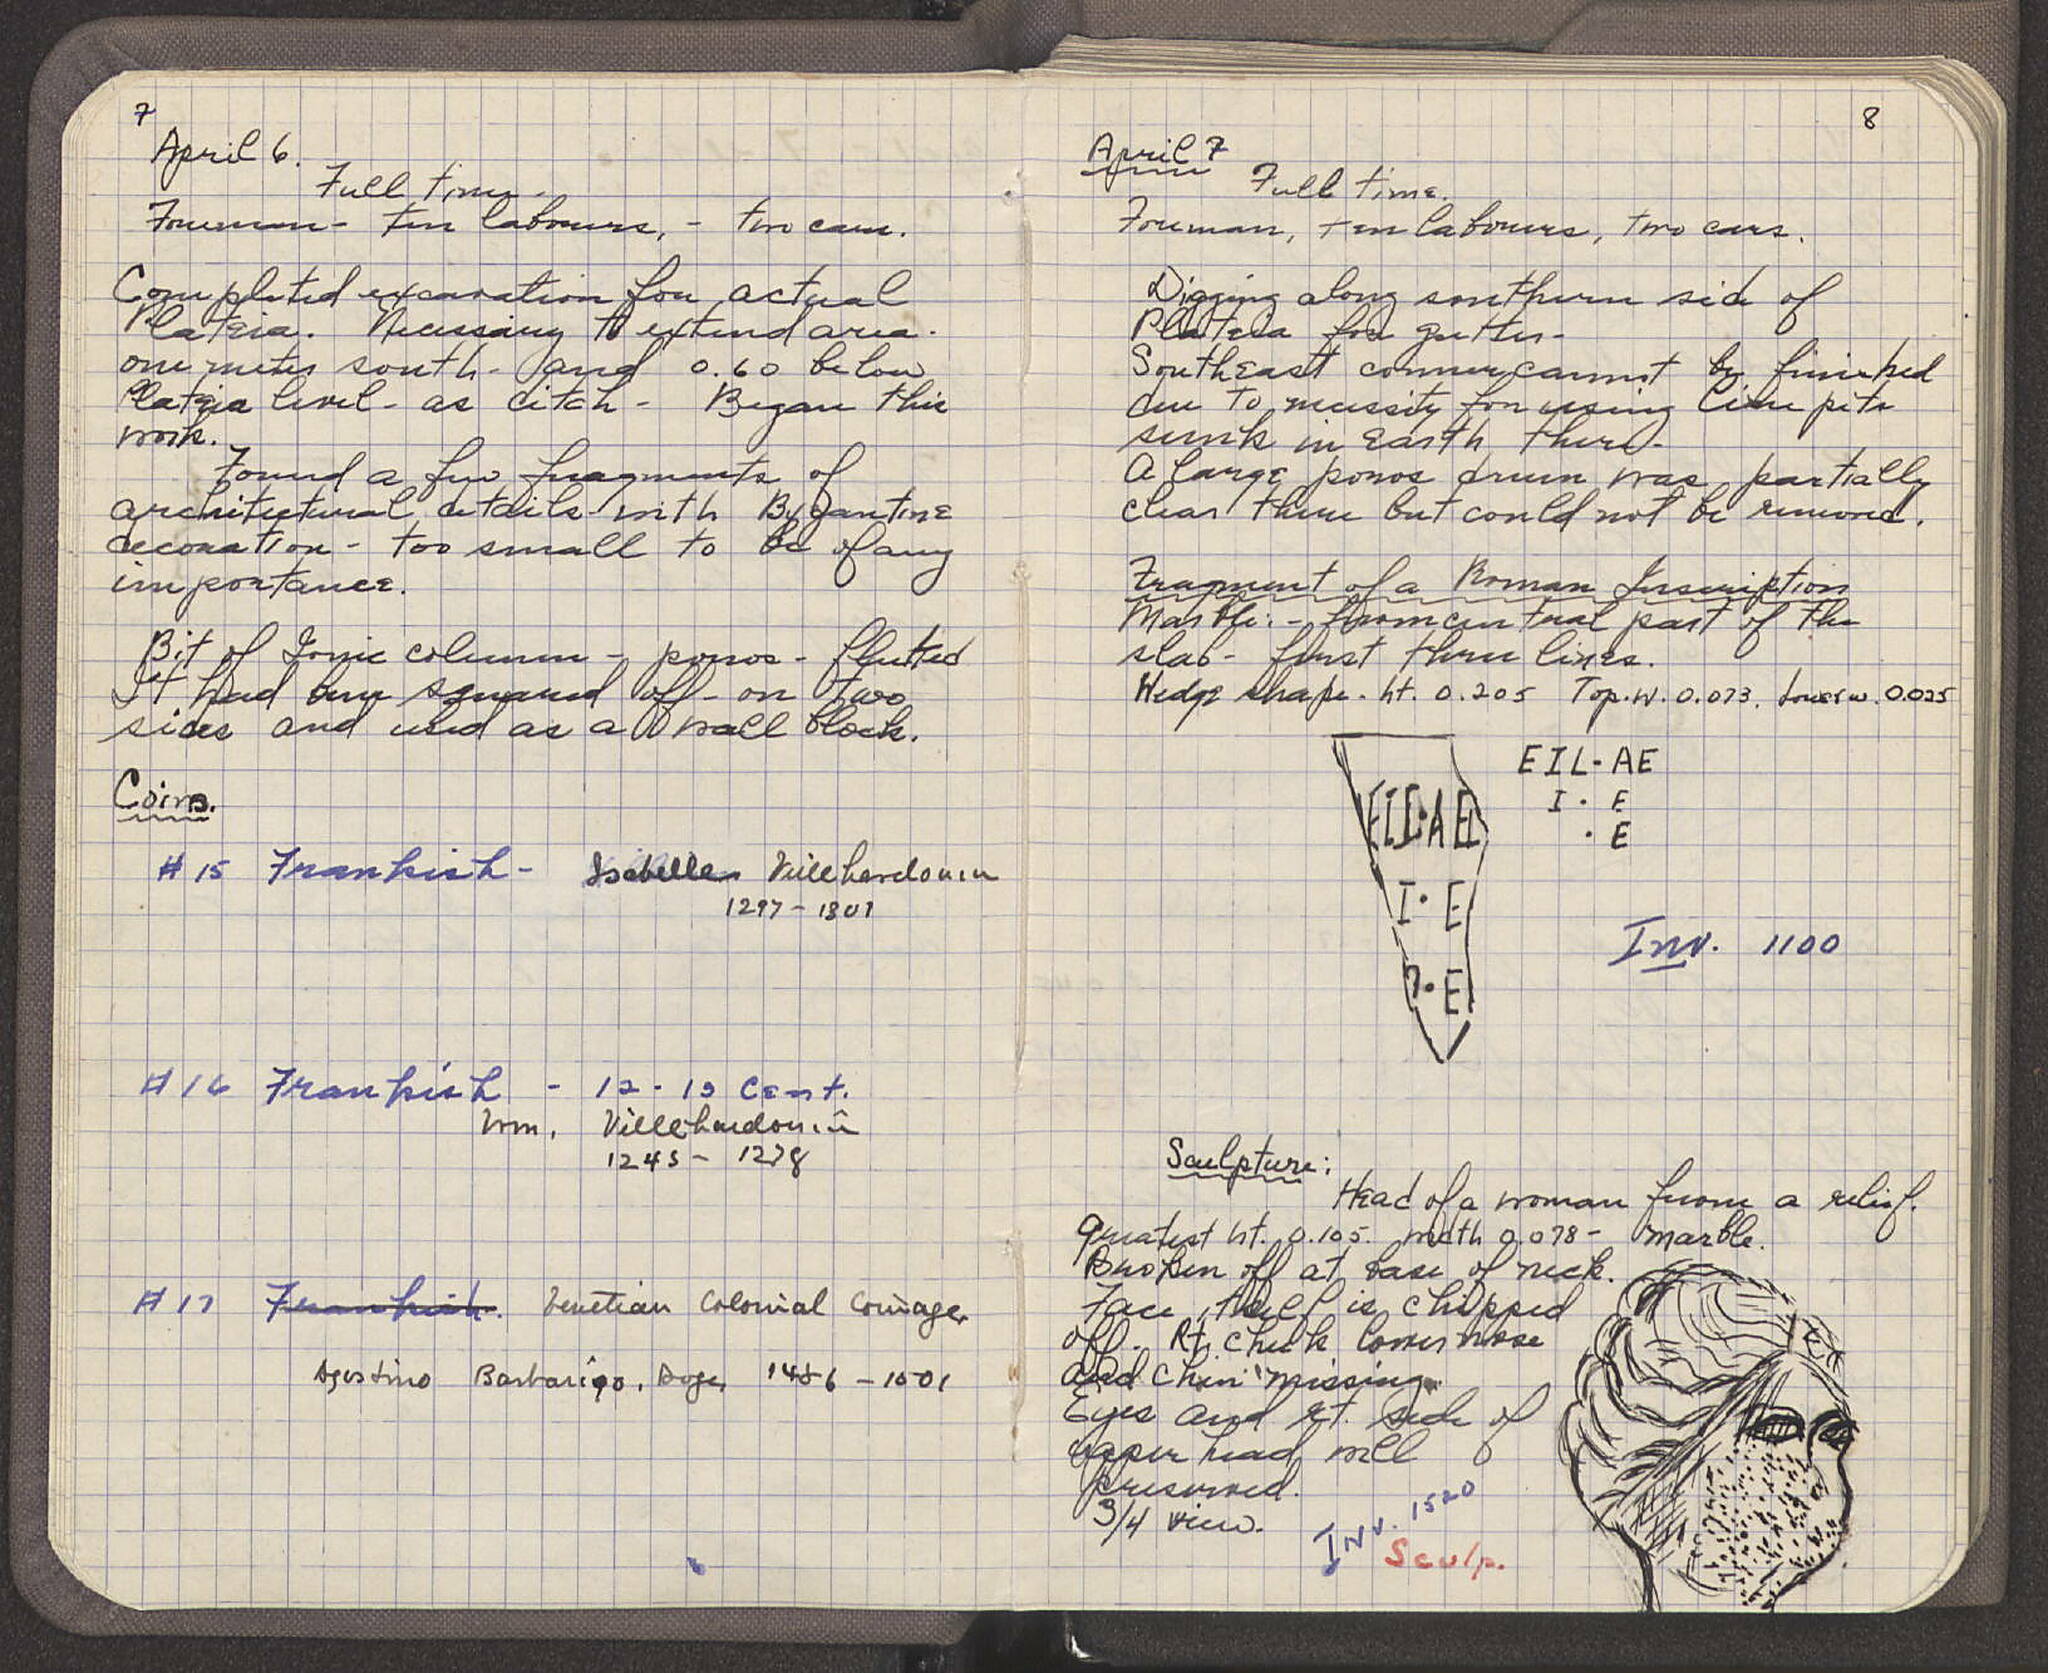 7
April 6.
Full time.
Foreman - ten labourers, - two cars.
Completed excavation for actual
Plateia. Necessary to extend area.
one meter south - and 0.60 below
Plateia level - as ditch - Began this
work.
Found a few fragments of
architectural details with Byzantine
decoration - too small to be of any
importance.
Bit of Ionic column - poros - fluted
It had been squared off - on two
sides and used as a wall block.
Coins.
#15 Frankish - Isabelle Villehardouin
1297 - 1301
#16 Frankish - 12 - 13 Cent.
Wm. Villehardouin
1245 - 1278
#17 Frankish. Venetian Colonial Coinage,
Agostino Barbarigo, Doge, 1486 - 1501
8
April 7
Full time.
Foreman, ten labourers, two cars.
Digging along southern side of
Plateia for gutter -
Southeast corner cannot be finished
due to necessity for using lime pits
sunk in earth there -
A large poros drum was partially
clear there but could not be removed.
Fragment of a Roman Inscription
Marble: - from central part of the
slab - first three lines.
Wedge shape - ht. 0.205 Top. w. 0.073. lower w. 0.025
EIL·AE
I · E
· E
EIL·AE
I · E
· E
Inv. 1100
Sculpture:
Head of a woman from a relief.
greatest ht. 0.105. width 0.078 - marble.
Broken off at base of neck.
Face itself is chipped
off - Rt. cheek lower nose
and chin missing.
Eyes and rt. side of
upper head well
preserved.
3/4 view.
Inv. 1520
Sculp.